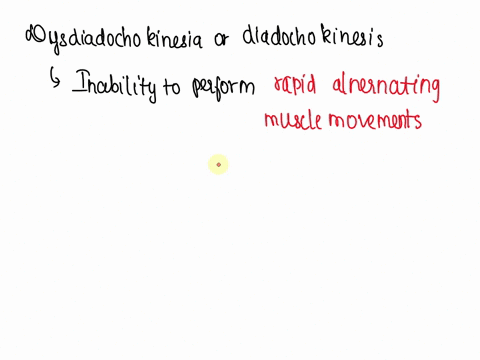 Dysdiadochokinesia or diadochokinesis
↳ Inability to perform rapid alnernating
muscle movements